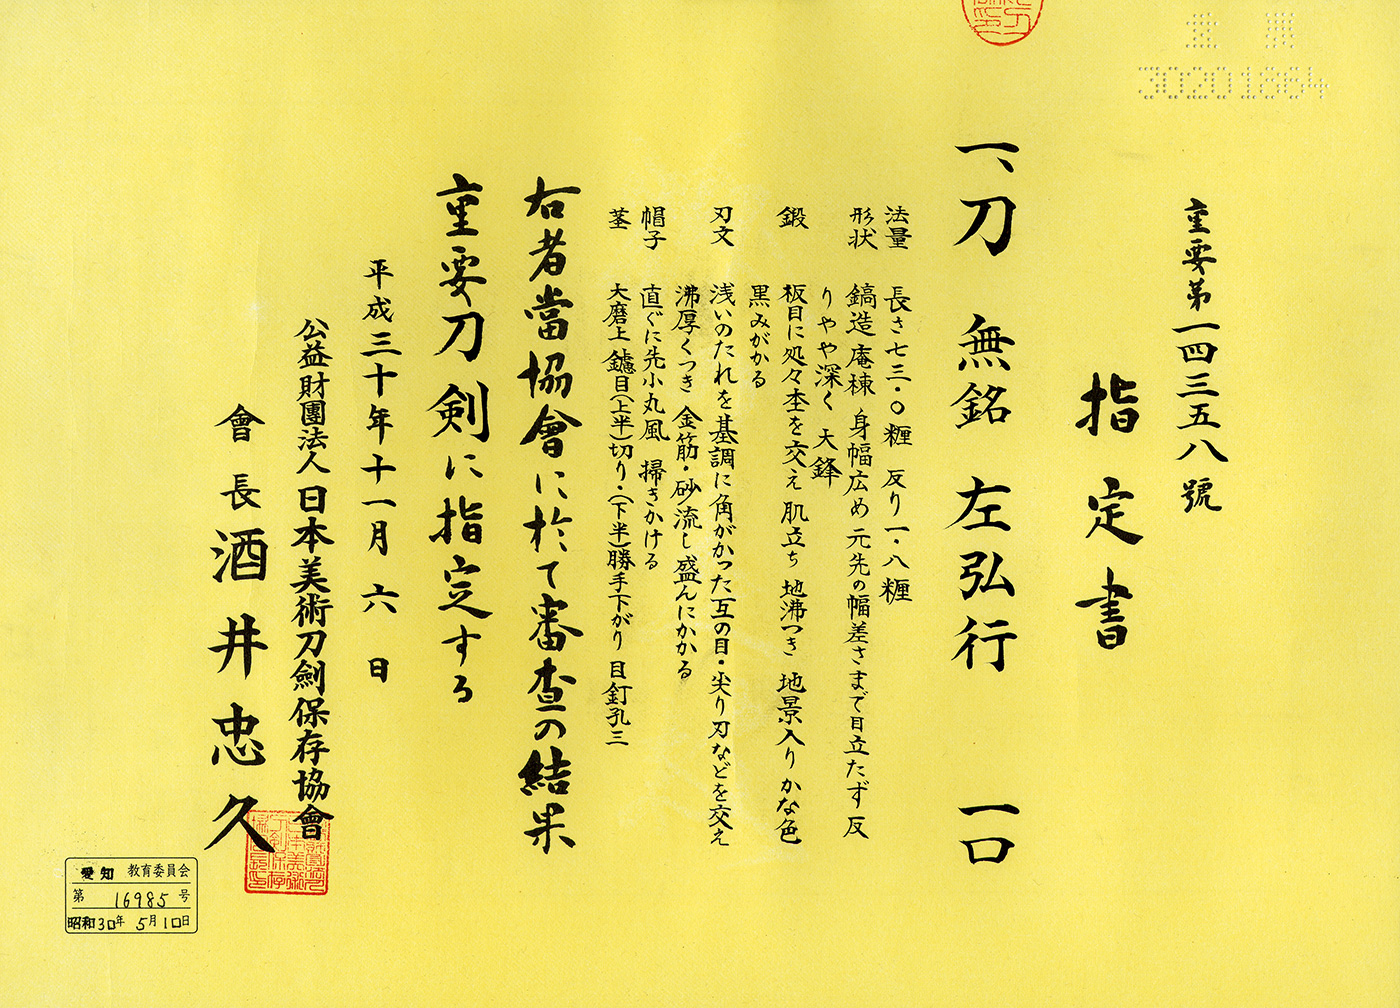 重要第一四三五八號
指定書
一、刀 無銘 左弘行 一口
法量 長さ七三・〇糎 反り一・八糎
形状 鎬造 庵棟 身幅広め 元先の幅差さまで目立たず 反
りやや深く 大鋒
鍛 板目に処々杢を交え 肌立ち 地沸つき 地景入り かな色
黒みがかる
刃文 浅いのたれを基調に角がかった互の目・尖り刃などを交え
沸厚くつき 金筋・砂流し盛んにかかる
帽子 直ぐに先小丸風 掃きかける
茎 大磨上 鑢目(上半)切り・(下半)勝手下がり 目釘孔三
右者當協會に於て審査の結果
重要刀剣に指定する
平成三十年十一月六日
公益財團法人日本美術刀劍保存協會
會長 酒井忠久
愛知 教育委員会
第 16985 号
昭和30年 5月10日
30201864